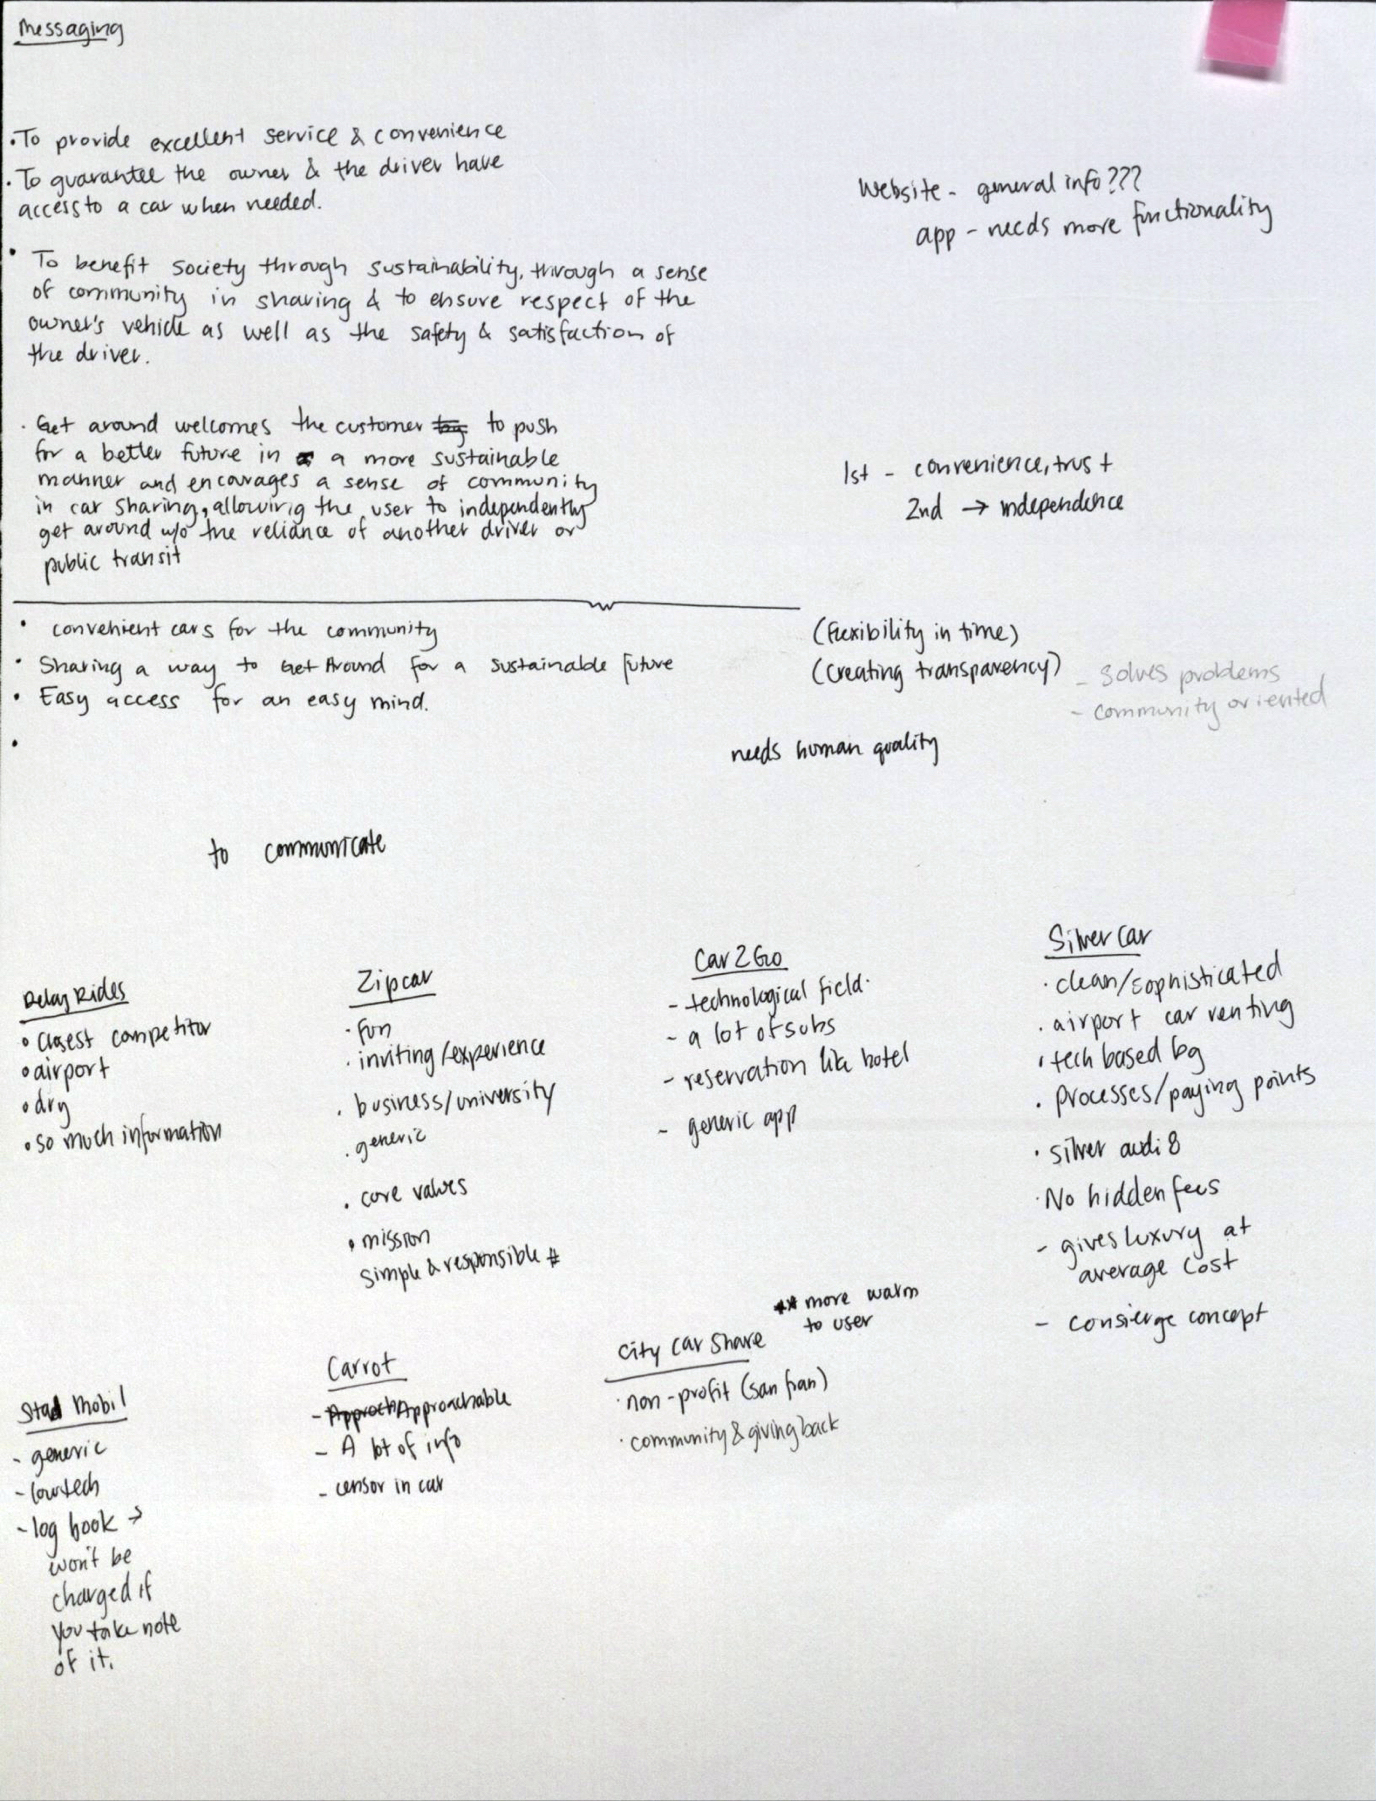 Messaging
• To provide excellent service & convenience
• To guarantee the owner & the driver have
access to a car when needed.
• To benefit society through sustainability, through a sense
of community in sharing & to ensure respect of the
owner's vehicle as well as the safety & satisfaction of
the driver.
• Get around welcomes the customer to push
for a better future in a more sustainable
manner and encourages a sense of community
in car sharing, allowing the user to independently
get around w/o the reliance of another driver or
public transit
Website - general info???
app - needs more functionality
1st - convenience, trust
2nd → independence
• convenient cars for the community
• Sharing a way to Get Around for a sustainable future
• Easy access for an easy mind.
•
(flexibility in time)
(creating transparency)
- solves problems
- community oriented
needs human quality
to communicate
Relay Rides
• closest competitor
• airport
• dry
• so much information
Zipcar
• fun
• inviting/experience
• business/university
• generic
• core values
• mission
simple & responsible #
Car2Go
- technological field.
- a lot of subs
- reservation like hotel
- generic app
Silver Car
• clean/sophisticated
• airport car renting
• tech based bg
• processes/paying points
• silver audi 8
• No hidden fees
- gives luxury at
average cost
- consierge concept
Stad Mobil
- generic
- low tech
- log book →
won't be
charged if
you take note
of it.
Carrot
- Approachable
- A lot of info
- censor in car
City Car Share
** more warm
to user
• non-profit (san fran)
• community & giving back